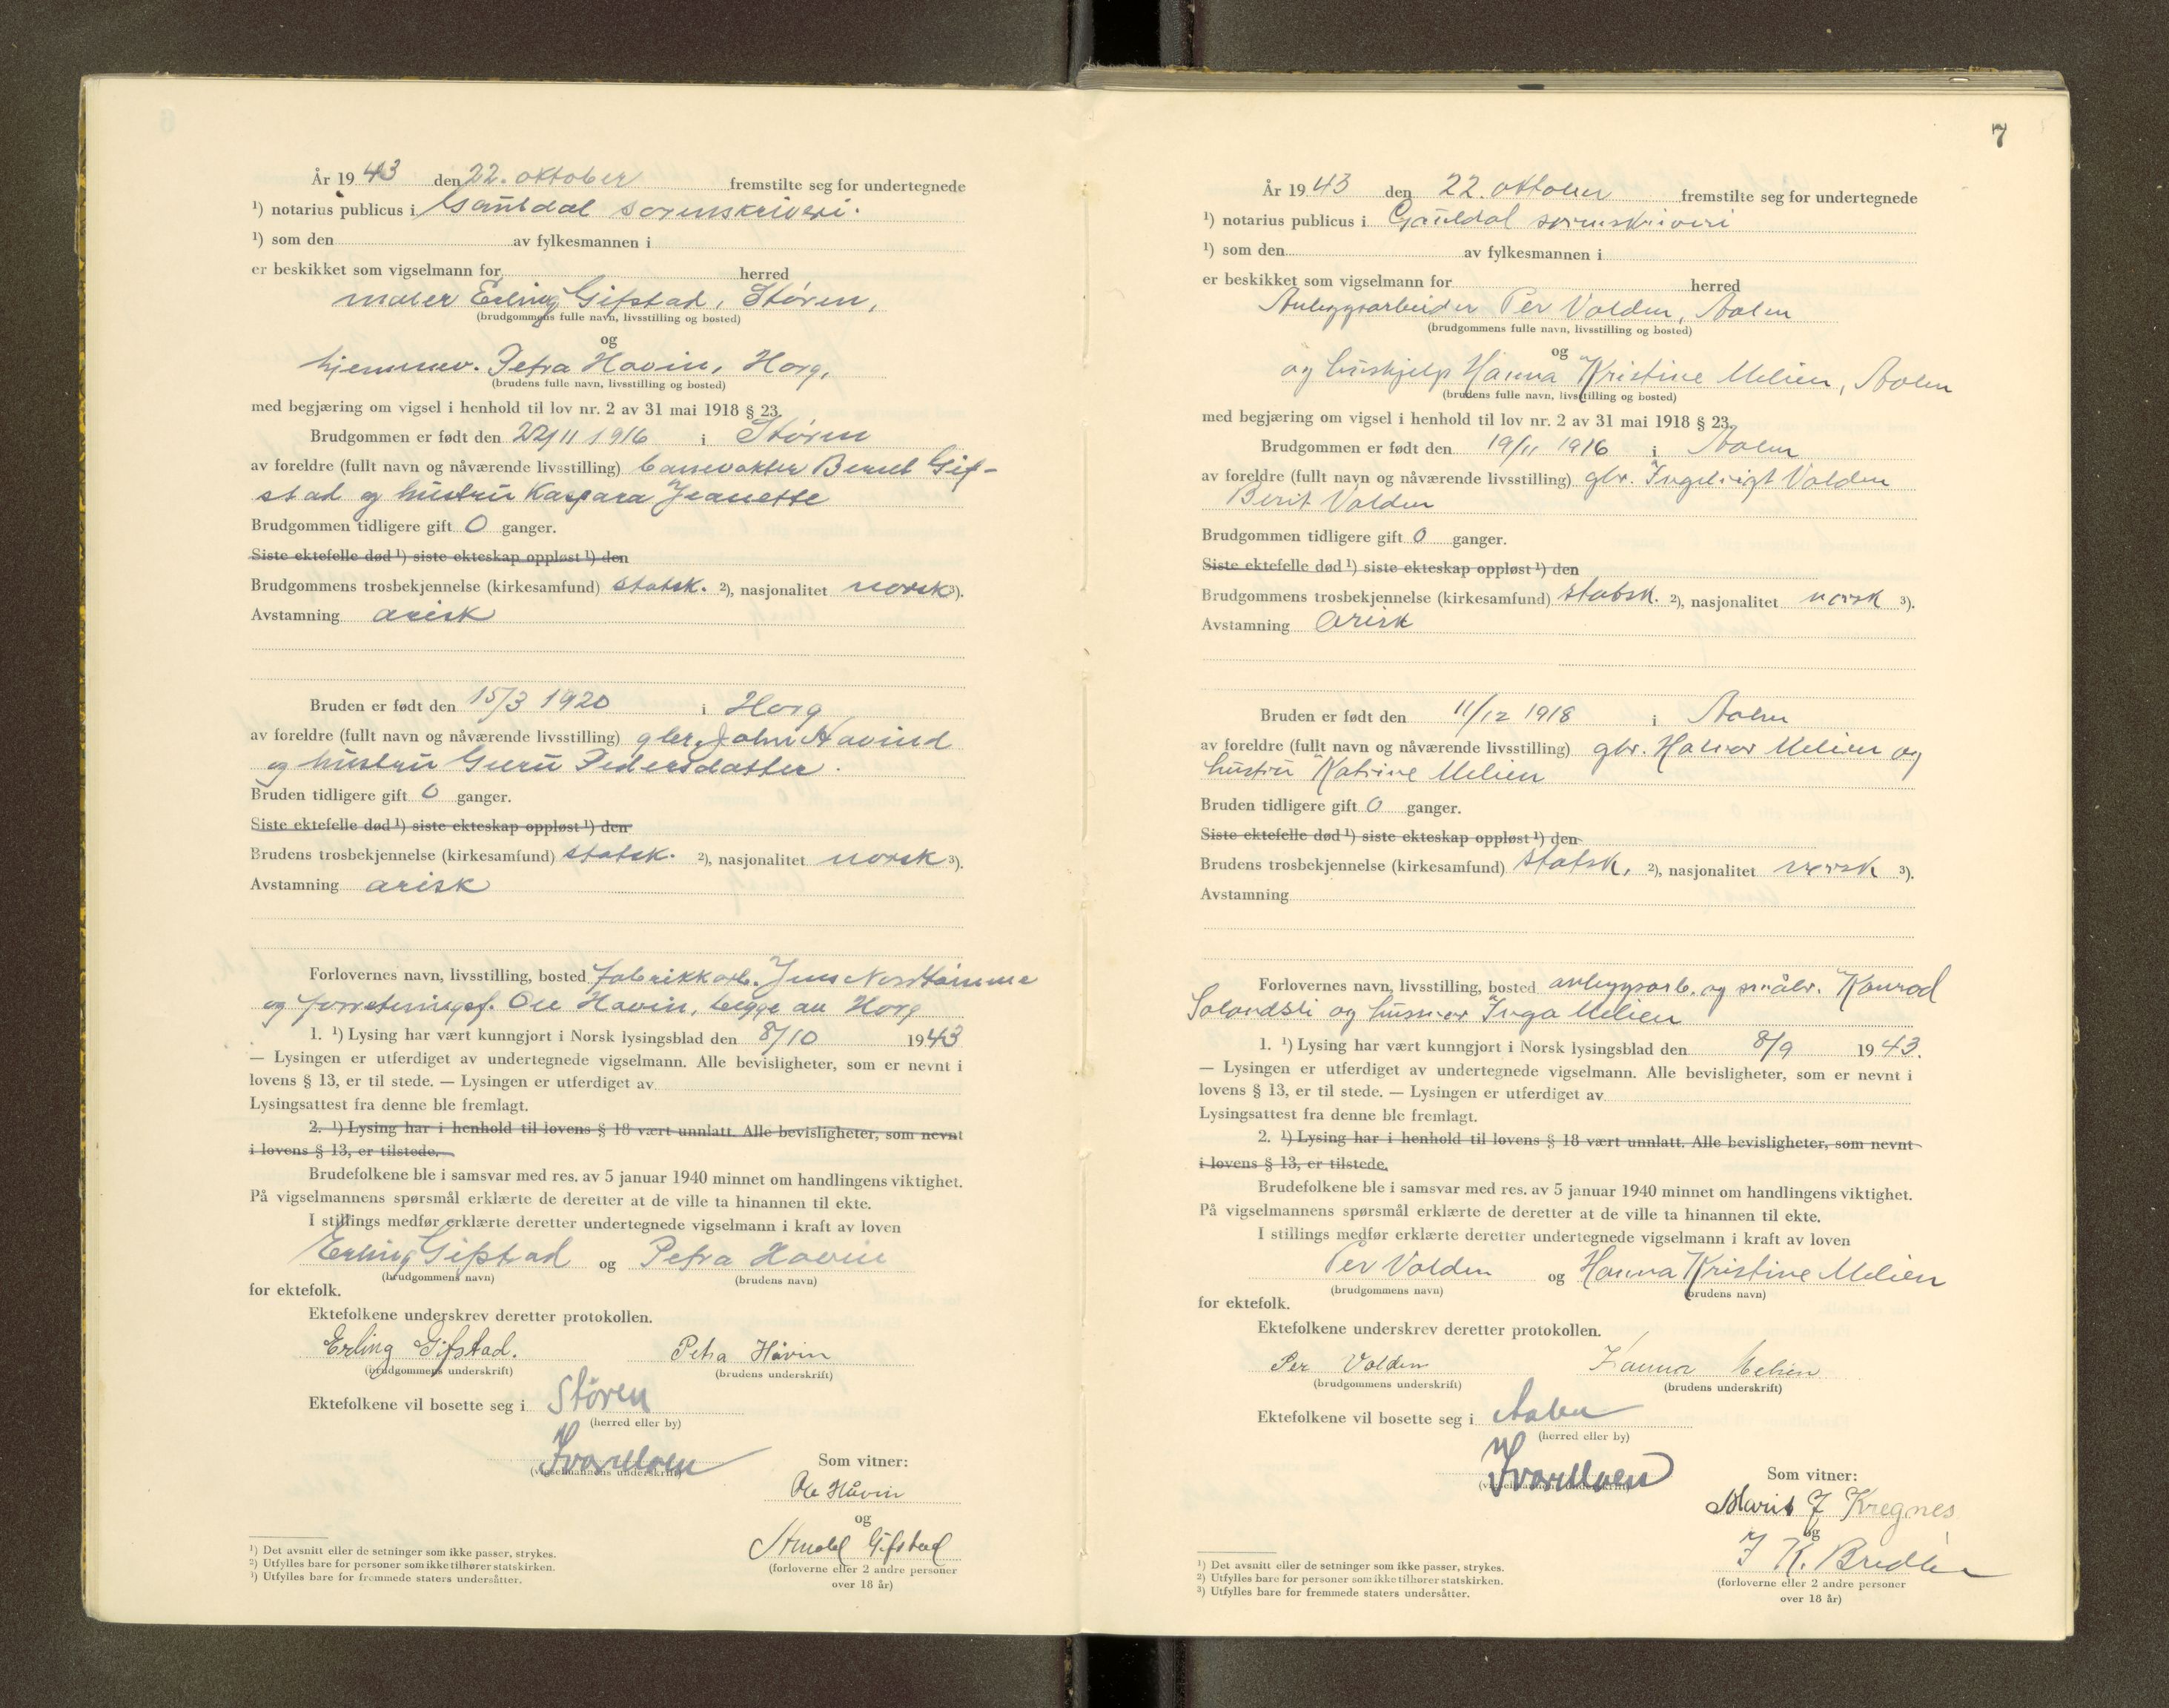 År 1943 den 22. oktober fremstilte seg for undertegnede
¹) notarius publicus i Gauldal sorenskriveri.
¹) som den av fylkesmannen i
er beskikket som vigselmann for herred
maler Erling Gifstad, Støren,
(brudgommens fulle navn, livsstilling og bosted)
og
hjemmev. Petra Havin, Horg,
(brudens fulle navn, livsstilling og bosted)
med begjæring om vigsel i henhold til lov nr. 2 av 31 mai 1918 § 23.
Brudgommen er født den 22/11 1916 i Støren
av foreldre (fullt navn og nåværende livsstilling) banevokter Bernt Gif-
stad og hustru Kaspara Jeanette
Brudgommen tidligere gift 0 ganger.
Siste ektefelle død ¹) siste ekteskap oppløst ¹) den
Brudgommens trosbekjennelse (kirkesamfund) statsk. ²), nasjonalitet norsk ³).
Avstamning arisk
Bruden er født den 15/3 1920 i Horg
av foreldre (fullt navn og nåværende livsstilling) gbr. John Havind
og hustru Guru Pedersdatter.
Bruden tidligere gift 0 ganger.
Siste ektefelle død ¹) siste ekteskap oppløst ¹) den
Brudens trosbekjennelse (kirkesamfund) statsk. ²), nasjonalitet norsk ³).
Avstamning arisk
Forlovernes navn, livsstilling, bosted fabrikkarb. Jens
og Ole Havin, begge av Horg
1. ¹) Lysing har vært kunngjort i Norsk lysingsblad den 8/10 1943
— Lysingen er utferdiget av undertegnede vigselmann. Alle bevisligheter, som er nevnt i
lovens § 13, er til stede. — Lysingen er utferdiget av
Lysingsattest fra denne ble fremlagt.
2. ¹) Lysing har i henhold til lovens § 18 vært unnlatt. Alle bevisligheter, som nevnt
i lovens § 13, er tilstede.
Brudefolkene ble i samsvar med res. av 5 januar 1940 minnet om handlingens viktighet.
På vigselmannens spørsmål erklærte de deretter at de ville ta hinannen til ekte.
I stillings medfør erklærte deretter undertegnede vigselmann i kraft av loven
Erling Gifstad og Petra Havin
(brudgommens navn) (brudens navn)
for ektefolk.
Ektefolkene underskrev deretter protokollen.
Erling Gifstad. Petra Håvin
(brudgommens underskrift) (brudens underskrift)
Ektefolkene vil bosette seg i Støren
(herred eller by)
(vigselmannens underskrift)
Som vitner:
Ole Håvin
og
Arnold Gifstad
(forloverne eller 2 andre personer
over 18 år)
¹) Det avsnitt eller de setninger som ikke passer, strykes.
²) Utfylles bare for personer som ikke tilhører statskirken.
³) Utfylles bare for fremmede staters undersåtter.
7
År 1943 den 22. oktober fremstilte seg for undertegnede
¹) notarius publicus i Gauldal sorenskriveri
¹) som den av fylkesmannen i
er beskikket som vigselmann for herred
Anleggsarbeider Per Volden, Aalen
(brudgommens fulle navn, livsstilling og bosted)
og
og hushjelp Hanna Kristine Melien, Aalen
(brudens fulle navn, livsstilling og bosted)
med begjæring om vigsel i henhold til lov nr. 2 av 31 mai 1918 § 23.
Brudgommen er født den 19/11 1916 i Aalen
av foreldre (fullt navn og nåværende livsstilling) gbr. Ingebrigt Volden
Berit Volden
Brudgommen tidligere gift 0 ganger.
Siste ektefelle død ¹) siste ekteskap oppløst ¹) den
Brudgommens trosbekjennelse (kirkesamfund) statsk. ²), nasjonalitet norsk ³).
Avstamning arisk
Bruden er født den 11/12 1918 i Aalen
av foreldre (fullt navn og nåværende livsstilling) gbr. Halvor Melien og
hustru Katrine Melien
Bruden tidligere gift 0 ganger.
Siste ektefelle død ¹) siste ekteskap oppløst ¹) den
Brudens trosbekjennelse (kirkesamfund) statsk. ²), nasjonalitet norsk ³).
Avstamning
Forlovernes navn, livsstilling, bosted anleggsarb. og småbr. Konrad
og husmor Inga Melien
1. ¹) Lysing har vært kunngjort i Norsk lysingsblad den 8/9 1943.
— Lysingen er utferdiget av undertegnede vigselmann. Alle bevisligheter, som er nevnt i
lovens § 13, er til stede. — Lysingen er utferdiget av
Lysingsattest fra denne ble fremlagt.
2. ¹) Lysing har i henhold til lovens § 18 vært unnlatt. Alle bevisligheter, som nevnt
i lovens § 13, er tilstede.
Brudefolkene ble i samsvar med res. av 5 januar 1940 minnet om handlingens viktighet.
På vigselmannens spørsmål erklærte de deretter at de ville ta hinannen til ekte.
I stillings medfør erklærte deretter undertegnede vigselmann i kraft av loven
Per Volden og Hanna Kristine Melien
(brudgommens navn) (brudens navn)
for ektefolk.
Ektefolkene underskrev deretter protokollen.
Per Volden Hanna Melien
(brudgommens underskrift) (brudens underskrift)
Ektefolkene vil bosette seg i Aalen
(herred eller by)
(vigselmannens underskrift)
Som vitner:
Marit J Kregnes
og
J K. Bredli
(forloverne eller 2 andre personer
over 18 år)
¹) Det avsnitt eller de setninger som ikke passer, strykes.
²) Utfylles bare for personer som ikke tilhører statskirken.
³) Utfylles bare for fremmede staters undersåtter.